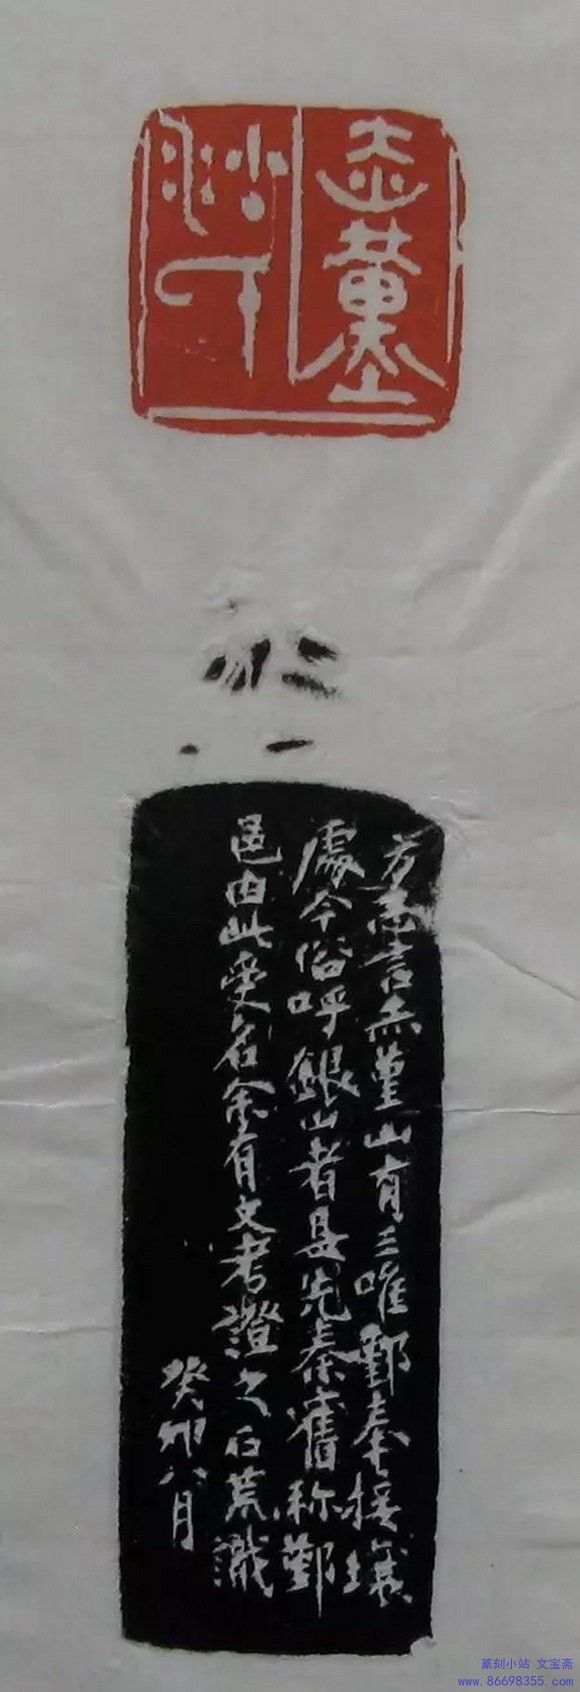 赤堇
方志言赤堇山有三唯鄞奉接壤
處今俗呼銀山者是先秦舊称鄞
邑由此受名余有文考證之石荒識
癸卯八月
篆刻小站 文宝斋
www.86698355.com